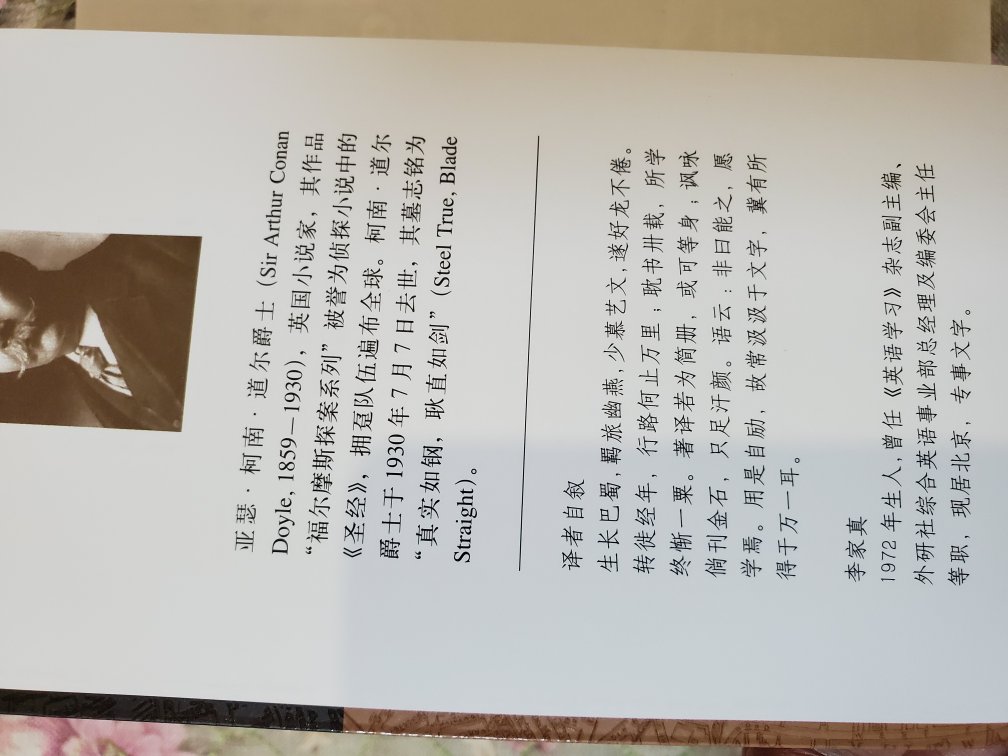 亚瑟·柯南·道尔爵士（Sir Arthur Conan
Doyle, 1859—1930），英国小说家，其作品
“福尔摩斯探案系列”被誉为侦探小说中的
《圣经》，拥趸队伍遍布全球。柯南·道尔
爵士于1930年7月7日去世，其墓志铭为
“真实如钢，耿直如剑”（Steel True, Blade
Straight）。
译者自叙
生长巴蜀，羁旅幽燕，少慕艺文，遂好龙不倦。
转徙经年，行路何止万里；耽书卅载，所学
终惭一粟。著译若为简册，或可等身；讽咏
倘刊金石，只足汗颜。语云：非曰能之，愿
学焉。用是自励，故常汲汲于文字，冀有所
得于万一耳。
李家真
1972年生人，曾任《英语学习》杂志副主编、
外研社综合英语事业部总经理及编委会主任
等职，现居北京，专事文字。